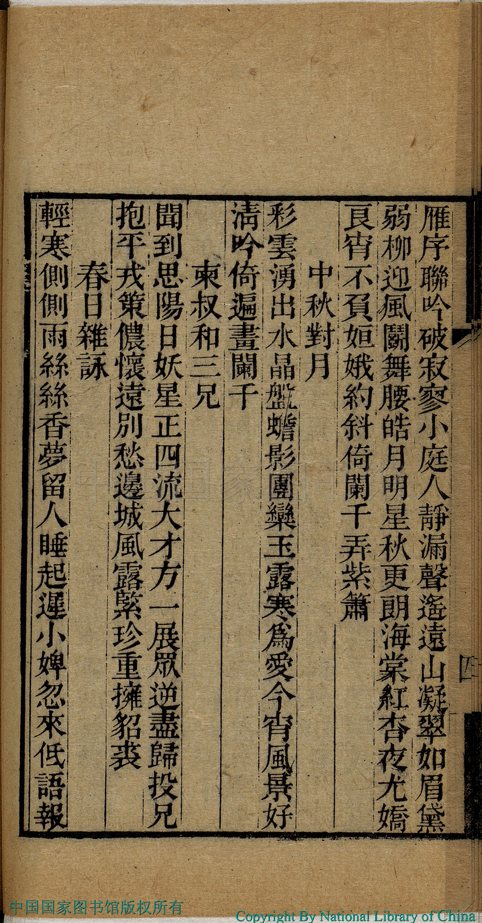 雁序聯吟破寂寥小庭人靜漏聲遙遠山凝翠如眉黛
弱柳迎風鬭舞腰皓月明星秋更朗海棠紅杏夜尤嬌
良宵不負姮娥約斜倚闌干弄紫簫
中秋對月
彩雲湧出水晶盤蟾影團欒玉露寒爲愛今宵風景好
淸吟倚遍畫闌干
柬叔和三兄
聞到思陽日妖星正四流大才方一展眾逆盡歸投兄
抱平戎策儂懷遠別愁邊城風露緊珍重擁貂裘
春日雜詠
輕寒側側雨絲絲香夢留人睡起遲小婢忽來低語報
四
中国国家图书馆版权所有
Copyright By National Library of China